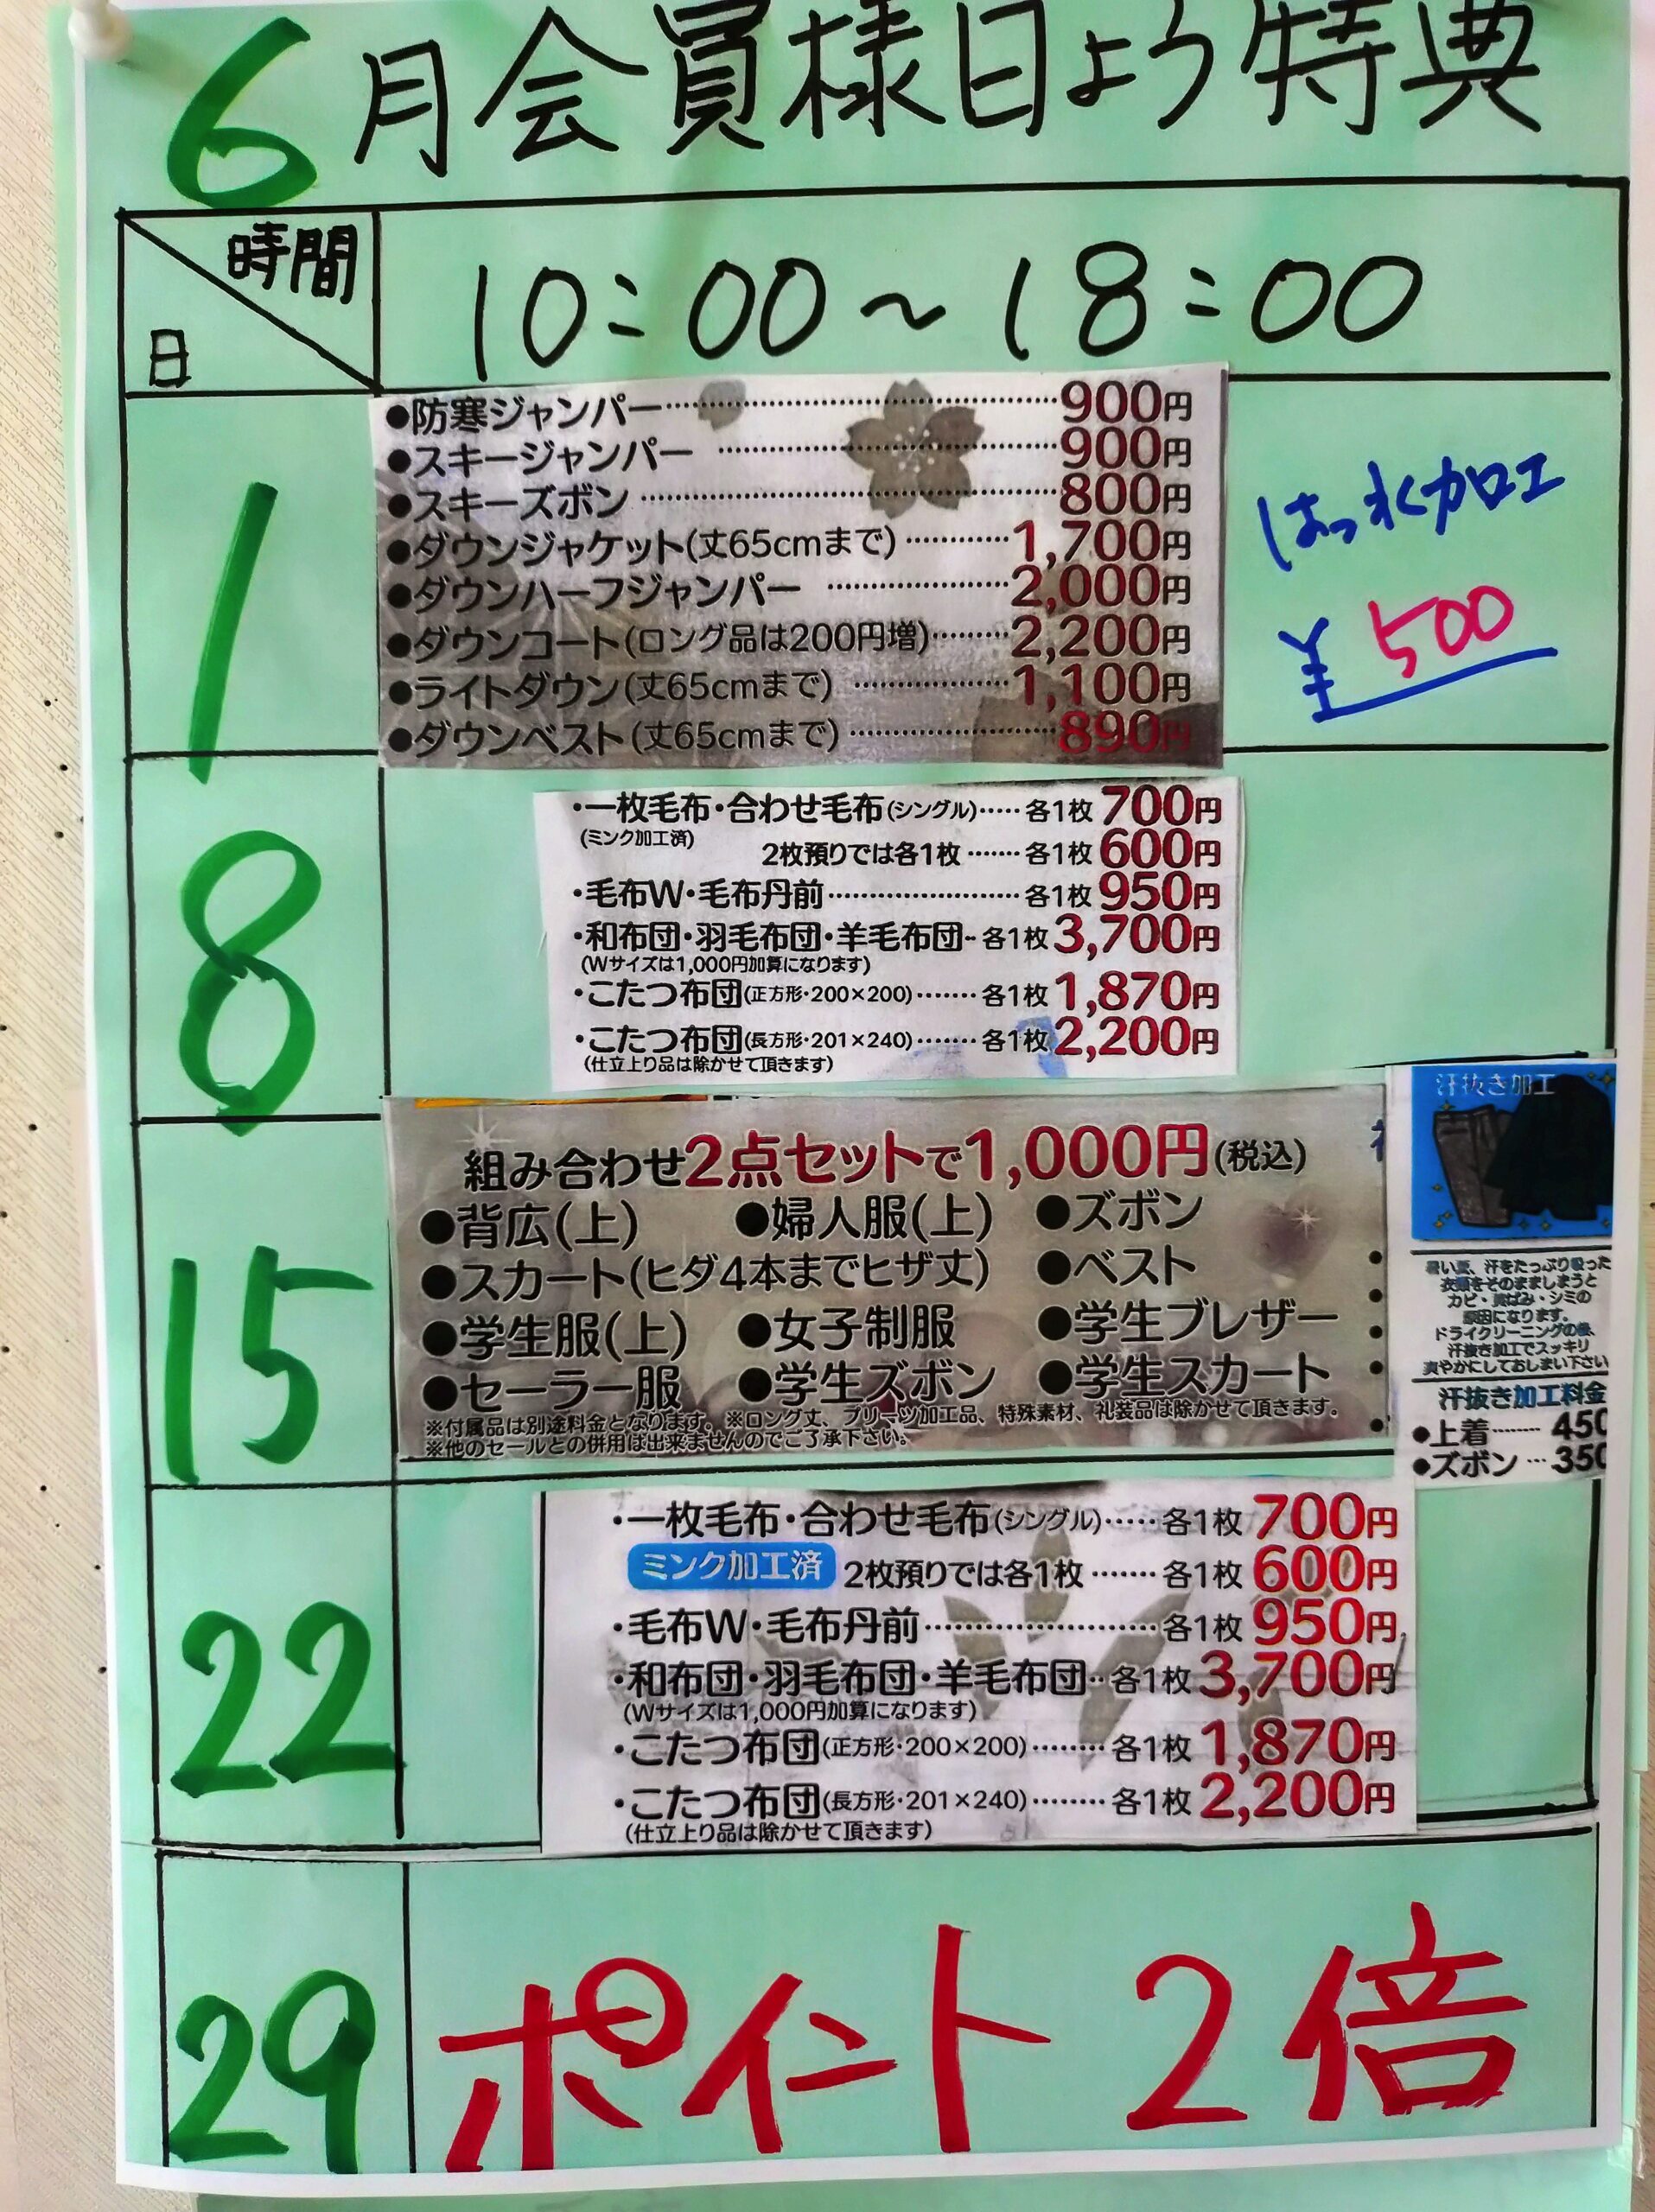 6月会員様日よう特典
時間
日
10:00～18:00
1
●防寒ジャンパー…900円
●スキージャンパー…900円
●スキーズボン…800円
●ダウンジャケット(丈65cmまで)…1,700円
●ダウンハーフジャンパー…2,000円
●ダウンコート(ロング品は200円増)…2,200円
●ライトダウン(丈65cmまで)…1,100円
●ダウンベスト(丈65cmまで)…890円
はっ水加工
¥500
8
・一枚毛布・合わせ毛布(シングル)……各1枚 700円
(ミンク加工済)
2枚預りでは各1枚……各1枚 600円
・毛布W・毛布丹前…各1枚 950円
・和布団・羽毛布団・羊毛布団‥各1枚 3,700円
(Wサイズは1,000円加算になります)
・こたつ布団(正方形・200×200)……各1枚 1,870円
・こたつ布団(長方形・201×240)……各1枚 2,200円
(仕立上り品は除かせて頂きます)
15
組み合わせ2点セットで1,000円(税込)
●背広(上) ●婦人服(上) ●ズボン
●スカート(ヒダ4本までヒザ丈) ●ベスト
●学生服(上) ●女子制服 ●学生ブレザー
●セーラー服 ●学生ズボン ●学生スカート
※付属品は別途料金となります。※ロング丈、プリーツ加工品、特殊素材、礼装品は除かせて頂きます。
※他のセールとの併用は出来ませんのでご了承下さい。
汗抜き加工
暑い夏、汗をたっぷり吸った
衣類をそのまましまうと
カビ・黄ばみ・シミの
原因になります。
ドライクリーニングの後、
汗抜き加工でスッキリ
爽やかにしておしまい下さい
汗抜き加工料金
●上着……450
●ズボン…350
22
・一枚毛布・合わせ毛布(シングル)……各1枚 700円
ミンク加工済 2枚預りでは各1枚……各1枚 600円
・毛布W・毛布丹前…各1枚 950円
・和布団・羽毛布団・羊毛布団‥各1枚 3,700円
(Wサイズは1,000円加算になります)
・こたつ布団(正方形・200×200)……各1枚 1,870円
・こたつ布団(長方形・201×240)……各1枚 2,200円
(仕立上り品は除かせて頂きます)
29
ポイント2倍